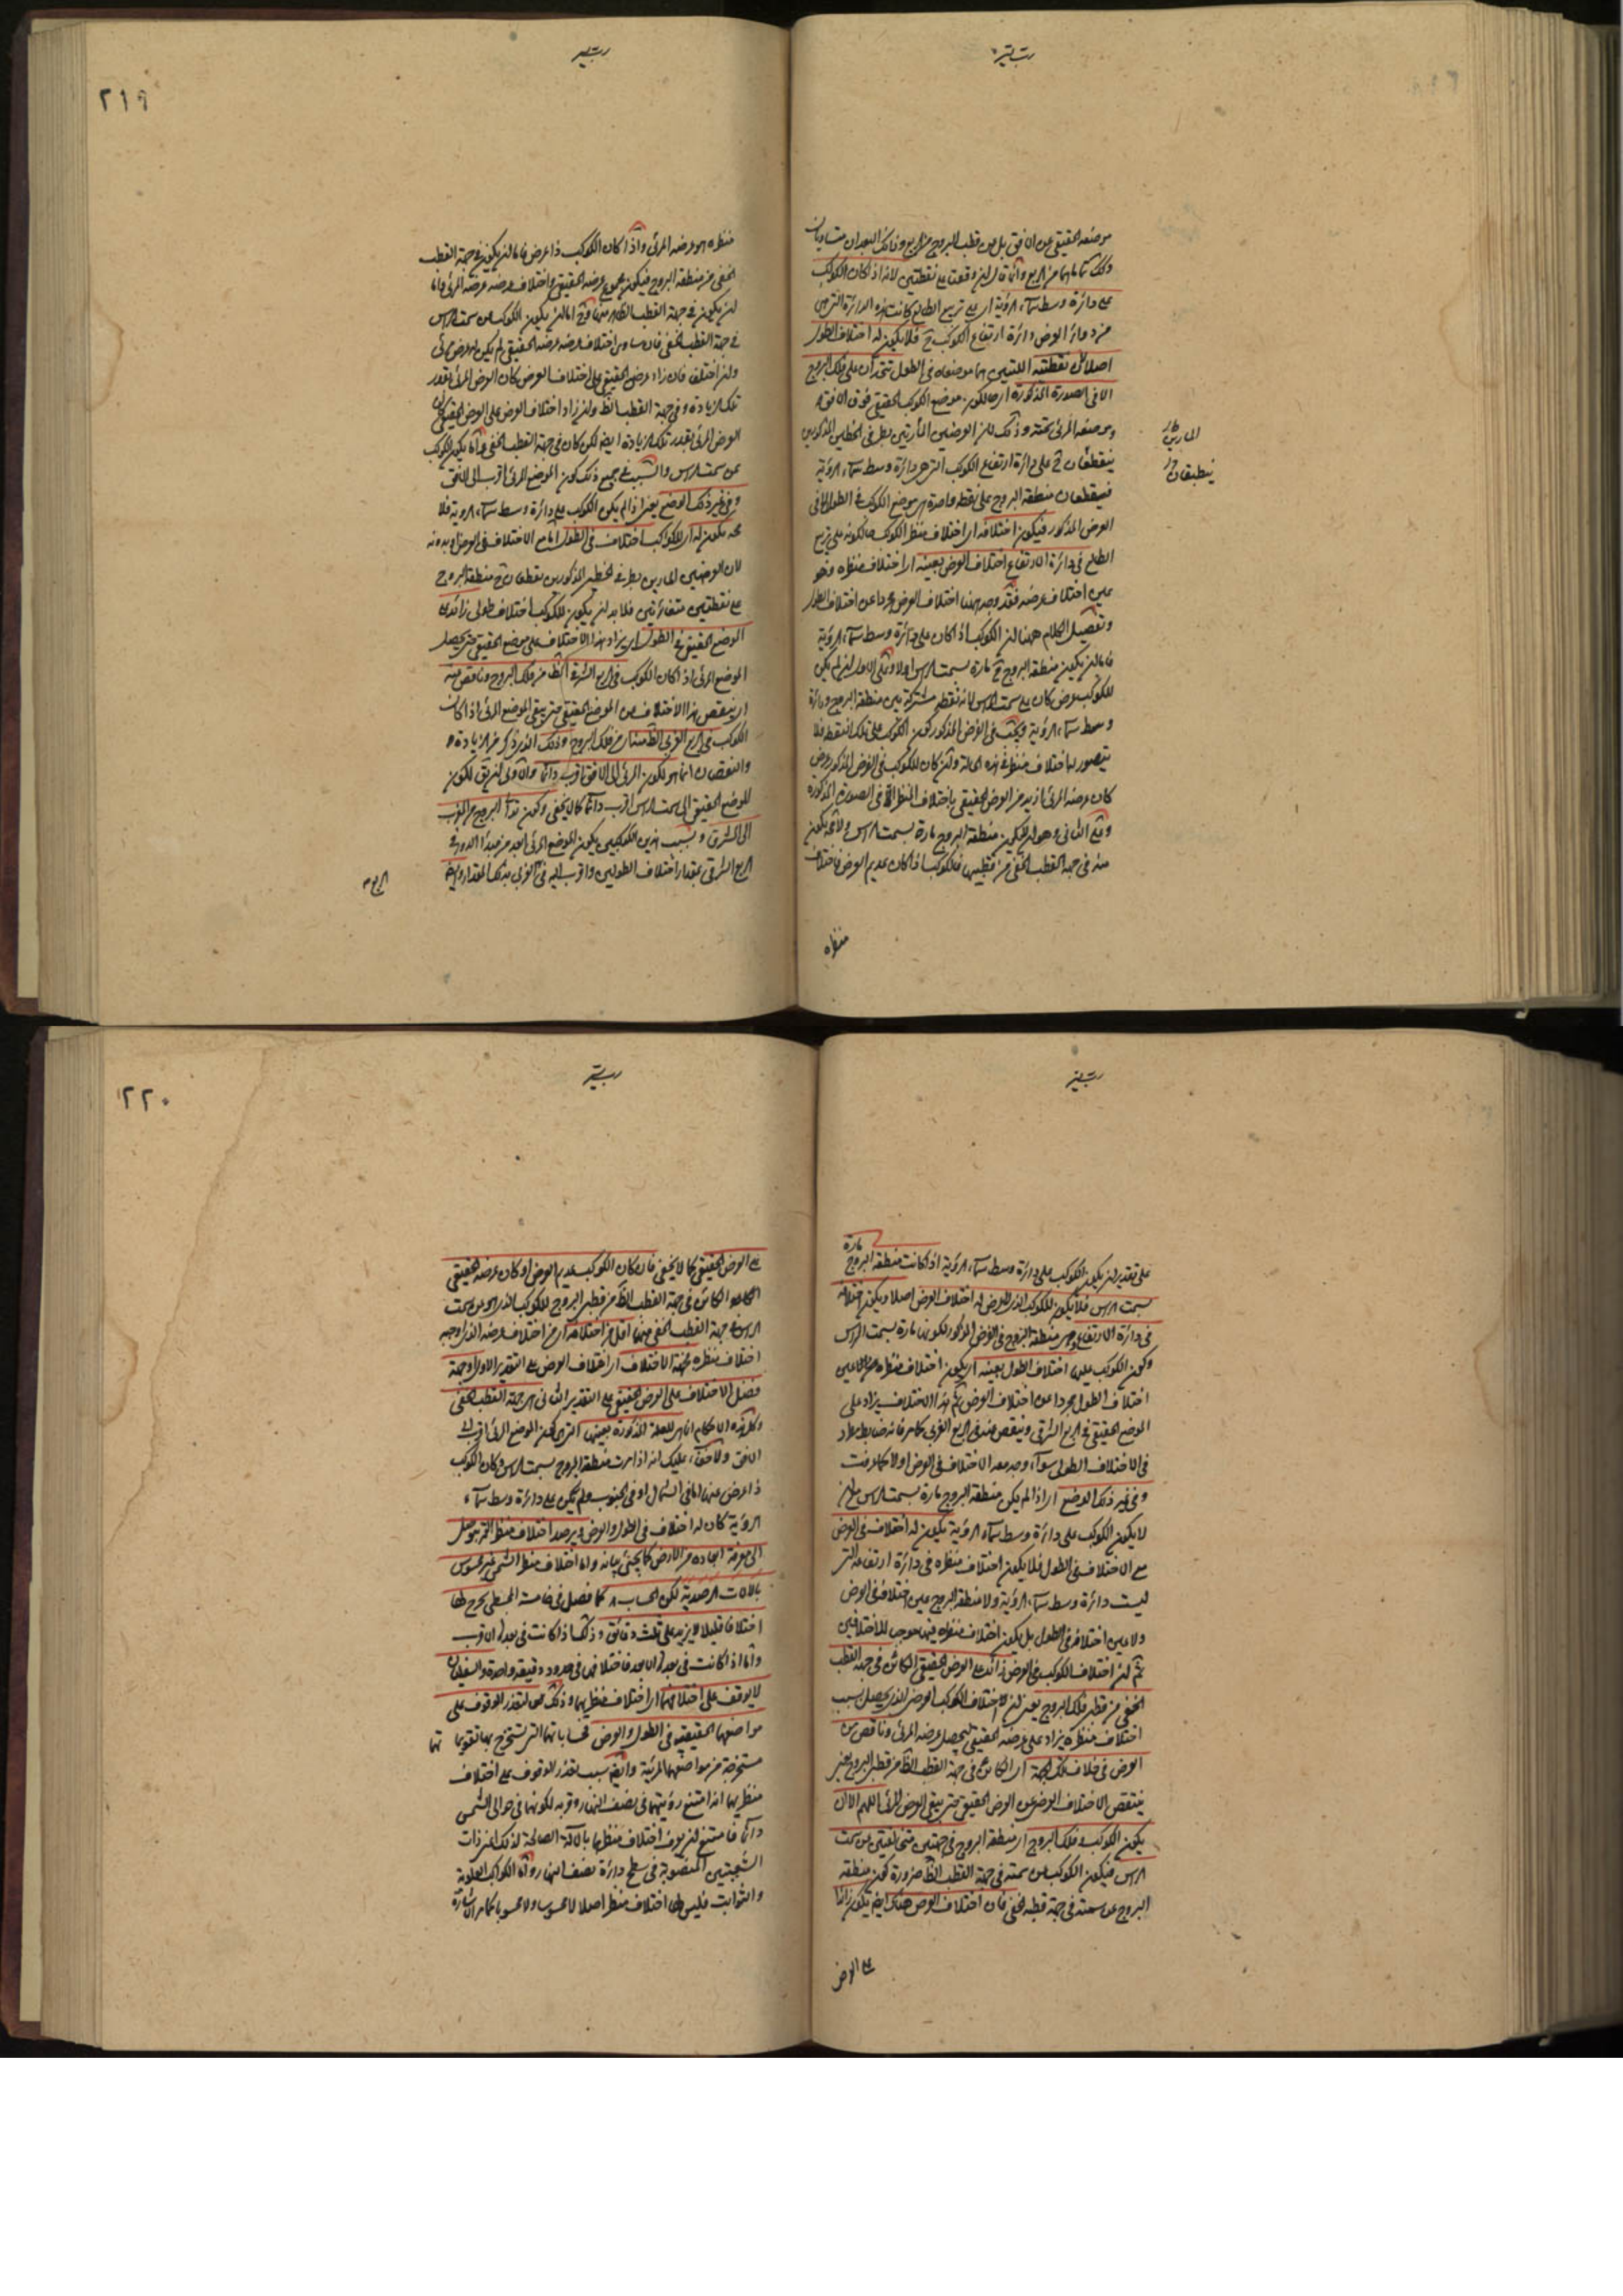 موضعه الحقيقي عن الافق بل بين قطب البروج البعدان متساويان
على دائرة وسط سماء الرؤية الطالع كانت هذه الدائرة التي هي
من دوائر العرض دائرة ارتفاع الكوكب ح فلا يكون له اختلاف الطول
اصلا لان نقطتيه اللتين هما موضعاه في الطول تتحدان على فلك البروج
الا في الصورة المذكورة موضع الكوكب الحقيقي فوق الافق
وموضعه المرئي تحته وذلك لان العرضيتين المارتين بطرفي الخطين المذكورين
المارتين
ينطبقان
ينطبقان ح على دائرة ارتفاع الكوكب التي هي دائرة وسط سماء الرؤية
فيتقطعان منطقة البروج على نقطة واحدة هي موضع الكوكب في الطول
العرض المذكور فيكون اختلافه اى اختلاف منظر الكوكب
في دائرة الارتفاع اختلاف العرض بعينه اى اختلاف منظره وهو
عين اختلاف عرضه فقد وجد ههنا اختلاف العرض مجردا عن اختلاف الطول
وتفصيل الكلام ههنا ان الكوكب اذا كان على دائرة وسط سماء الرؤية
فاما ان يكون منطقة البروج ح مارة بسمت الراس اولا وعلى الاول ان لم يكن
للكوكب عرض كان على سمت الراس لانه نقطة مشتركة بين منطقة البروج ودائرة
وسط سماء الرؤية في الفرض المذكور كون الكوكب على تلك النقطة فلا
يتصور له اختلاف منظر في هذه الحالة وان كان للكوكب في الفرض المذكور عرض
كان عرضه المرئي ازيد من العرض الحقيقي باختلاف المنظر في الصورة المذكورة
وعلى الثاني وهو ان لا يكون منطقة البروج مارة بسمت الراس
عنه في جهة القطب الخفي من قطبيها فالكوكب اذا كان عديم العرض فاختلاف
منظره
منظره هو عرضه المرئي واذا كان الكوكب ذا عرض فاما ان يكون في جهة القطب
الخفي من منطقة البروج فيكون مجموع عرضه الحقيقي واختلاف عرضه عرضه المرئي واما
ان يكون في جهة القطب الظاهر منها وح اما ان يكون الكوكب عن سمت الراس
في جهة القطب الخفي فان ساوى اختلاف عرضه عرضه الحقيقي لم يكن له عرض مرئي
وان اختلفا فان زاد عرض الحقيقي على اختلاف العرض كان العرض المرئي بقدر
تلك الزيادة وفي جهة القطب الظاهر وان زاد اختلاف العرض على العرض الحقيقي كان
العرض المرئي بقدر تلك الزيادة ايضا لكن كان في جهة القطب الخفي واما ان يكون الكوكب
عن سمت الراس والسبب في جميع ذلك كون الموضع المرئي اقرب الى الافق
وفي غير ذلك الوضع يعني اذا لم يكن الكوكب على دائرة وسط سماء الرؤية فلا
بد يكون له اى للكوكب اختلاف في الطول اما مع الاختلاف في العرض او بدونه
لان العرضيتين المارتين بطرفي الخطين المذكورين تقطعان ح منطقة البروج
على نقطتين متغايرتين فلا بد ان يكون للكوكب اختلاف طولي زائد على
الموضع الحقيقي في الطول اى يزاد هذا الاختلاف على موضع الحقيقي حتى يحصل
الموضع المرئي اذا كان الكوكب في الربع الشرقي الظاهر من فلك البروج وناقص منه
اى ينقص هذا الاختلاف من الموضع الحقيقي حتى يبقى الموضع المرئي اذا كان
الكوكب في الربع الغربي الظاهر من فلك البروج وذلك الذى ذكر من الزيادة
والنقصان انما هو لكون المرئي الى الافق اقرب دائما والاولى ان يق لكون
الموضع الحقيقي الى سمت الراس اقرب دائما كما لا يخفى وكون توالى البروج من المغرب
الى المشرق وبسبب هذين الكونين يكون الموضع المرئي ابعد من مبدا الدور في
الربع الشرقي بمقدار اختلاف الطولين واقرب اليه في الغربي بذلك المقدار وايضا
على تقدير ان يكون الكوكب على دائرة وسط سماء الرؤية اذا كانت منطقة البروج
مارة
بسمت الراس فلا يكون للكوكب الذي لا عرض له اختلاف العرض اصلا ويكون اختلافه
في دائرة الارتفاع وهي منطقة البروج في الفرض المذكور لكونها مارة بسمت الراس
وكون الكوكب عليها اختلاف الطول بعينه اى يكون اختلاف منظره هو بعينه
اختلاف الطول مجردا عن اختلاف العرض ثم هذا الاختلاف يزاد على
الموضع الحقيقي في الربع الشرقي وينقص منه في الربع الغربي كما مر فانه ضابط مطرد
في الاختلاف الطولي سواء وجد معه الاختلاف في العرض اولا كما عرفت
وفي غير ذلك الوضع اى اذا لم يكن منطقة البروج مارة بسمت الراس
لا يكون الكوكب على دائرة وسط سماء الرؤية يكون له اختلاف في العرض
مع الاختلاف في الطول فلا يكون اختلاف منظره في دائرة ارتفاعه التي
ليست دائرة وسط سماء الرؤية ولا منطقة البروج عين اختلافه في العرض
ولا عين اختلافه في الطول بل يكون اختلاف منظره فيها موجب للاختلافين
ثم ان اختلاف الكوكب في العرض زائد على العرض الحقيقي الكائن في جهة القطب
الخفي من قطبي فلك البروج يعني ان اختلاف الكوكب في العرض الذي يحصل بسبب
اختلاف منظره يزاد على عرضه الحقيقي ليحصل عرضه المرئي وناقص من
العرض في خلاف تلك الجهة اى الكائن في جهة القطب الظاهر من قطبي البروج يعني
ينقص الاختلاف العرضي من العرض الحقيقي حتى يبقى العرض المرئي اللهم الا ان
يكون الكوكب وفلك البروج اى منطقة البروج في جهتين مختلفتين عن سمت
الراس فيكون الكوكب عن سمته في جهة القطب الظاهر ضرورة كون منطقة
البروج عن سمته في جهة قطبه الخفي فان اختلاف العرض هناك ايضا يكون زائدا
على العرض
على العرض الحقيقي كما لا يخفى فان كان الكوكب عديم العرض او كان عرضه الحقيقي
الكائن في جهة القطب الظاهر من قطبي البروج للكوكب الذي هو عن سمت
الراس في جهة القطب الخفي منهما اقل من اختلافه اى من اختلاف عرضه الذي اوجبه
اختلاف منظره فجهة الاختلاف اى اختلاف العرض على التقدير الاول وجهة
فضل الاختلاف على العرض الحقيقي على التقدير الثاني هي جهة القطب الخفي
وكل هذه الاحكام انما هي للعلة المذكورة بعينها التي هي كون الموضع المرئي اقرب الى
الافق ولا خفاء عليك انه اذا مرت منطقة البروج بسمت الراس وكان الكوكب
ذا عرض عنها اما في الشمال او في الجنوب ولم يكن على دائرة وسط سماء
الرؤية كان له اختلاف في الطول والعرض ويرصد اختلاف منظر القمر فيتوصل
الى معرفة ابعاده من الارض كما يجئ بيانه واما اختلاف منظر الشمس فغير محسوس
بالالات الرصدية لكن الحساب كما فصل في خامسة المجسطي يخرج لها
اختلافا قليلا لا يزيد على ثلث دقائق وذلك اذا كانت في بعدها الاقرب
واما اذا كانت في بعدها الابعد فاختلافها في حدود دقيقة واحدة والسفليان
لا يوقف على اختلافهما اى اختلاف منظريهما وذلك لتعذر الوقوف على
مواضعهما الحقيقية في الطول والعرض لحساباتهما التي تستخرج بها تقويماتهما
مستخرجة من مواضعهما المرئية وايضا سبب تعذر الوقوف على اختلاف
منظريهما انه امتنع رؤيتهما في نصف النهار وقربه لكونهما في حوالي الشمس
دائما فامتنع ان يعرف اختلاف منظرهما بالآلة الصالحة لذلك اعني ذات
الشعبتين المنصوبة في سطح دائرة نصف النهار واما الكواكب العلوية
والثوابت فليس لها اختلاف منظر اصلا لا محسوس ولا محسوبا كما مر اليه الاشارة